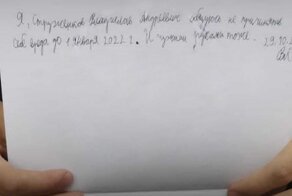 Я, Стружников Владислав Андреевич обязуюсь не причинять
себе вреда до 1 января 2022 г. И чужими руками тоже. 29.10